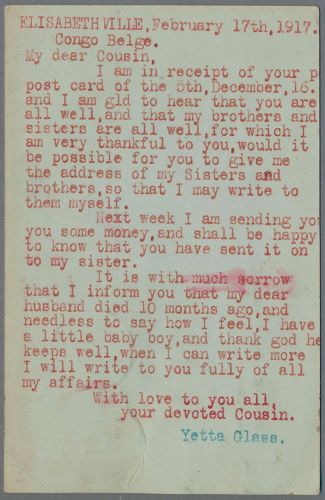 ELISABETHVILLE, February 17th, 1917.
Congo Belge.
My dear Cousin,
I am in receipt of your p
post card of the 5th, December, 16.
and I am gld to hear that you are
all well, and that my brothers and
sisters are all well, for which I
am very thankful to you, would it
be possible for you to give me
the address of my Sisters and
brothers, so that I may write to
them myself.
Next week I am sending you
you some money, and shall be happy
to know that you have sent it on
to my sister.
It is with much sorrow
that I inform you that my dear
husband died 10 months ago, and
needless to say how I feel, I have
a little baby boy, and thank god he
keeps well, when I can write more
I will write to you fully of all
my affairs.
With love to you all,
your devoted Cousin.
Yetta Glass.